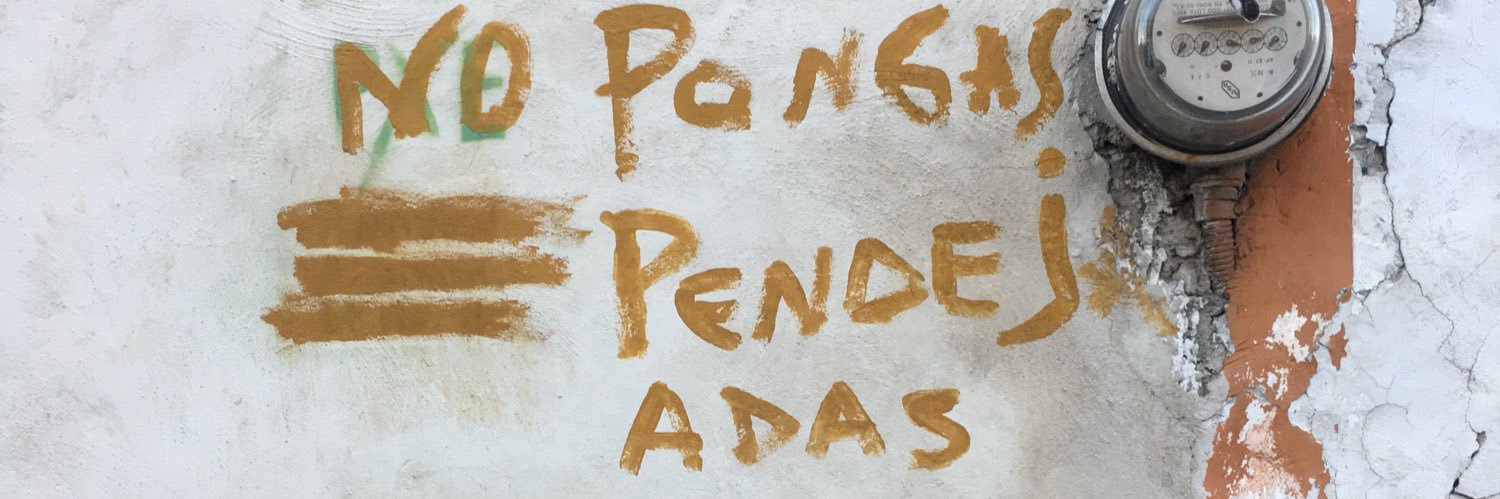 NO PONGAS
PENDEJ
ADAS